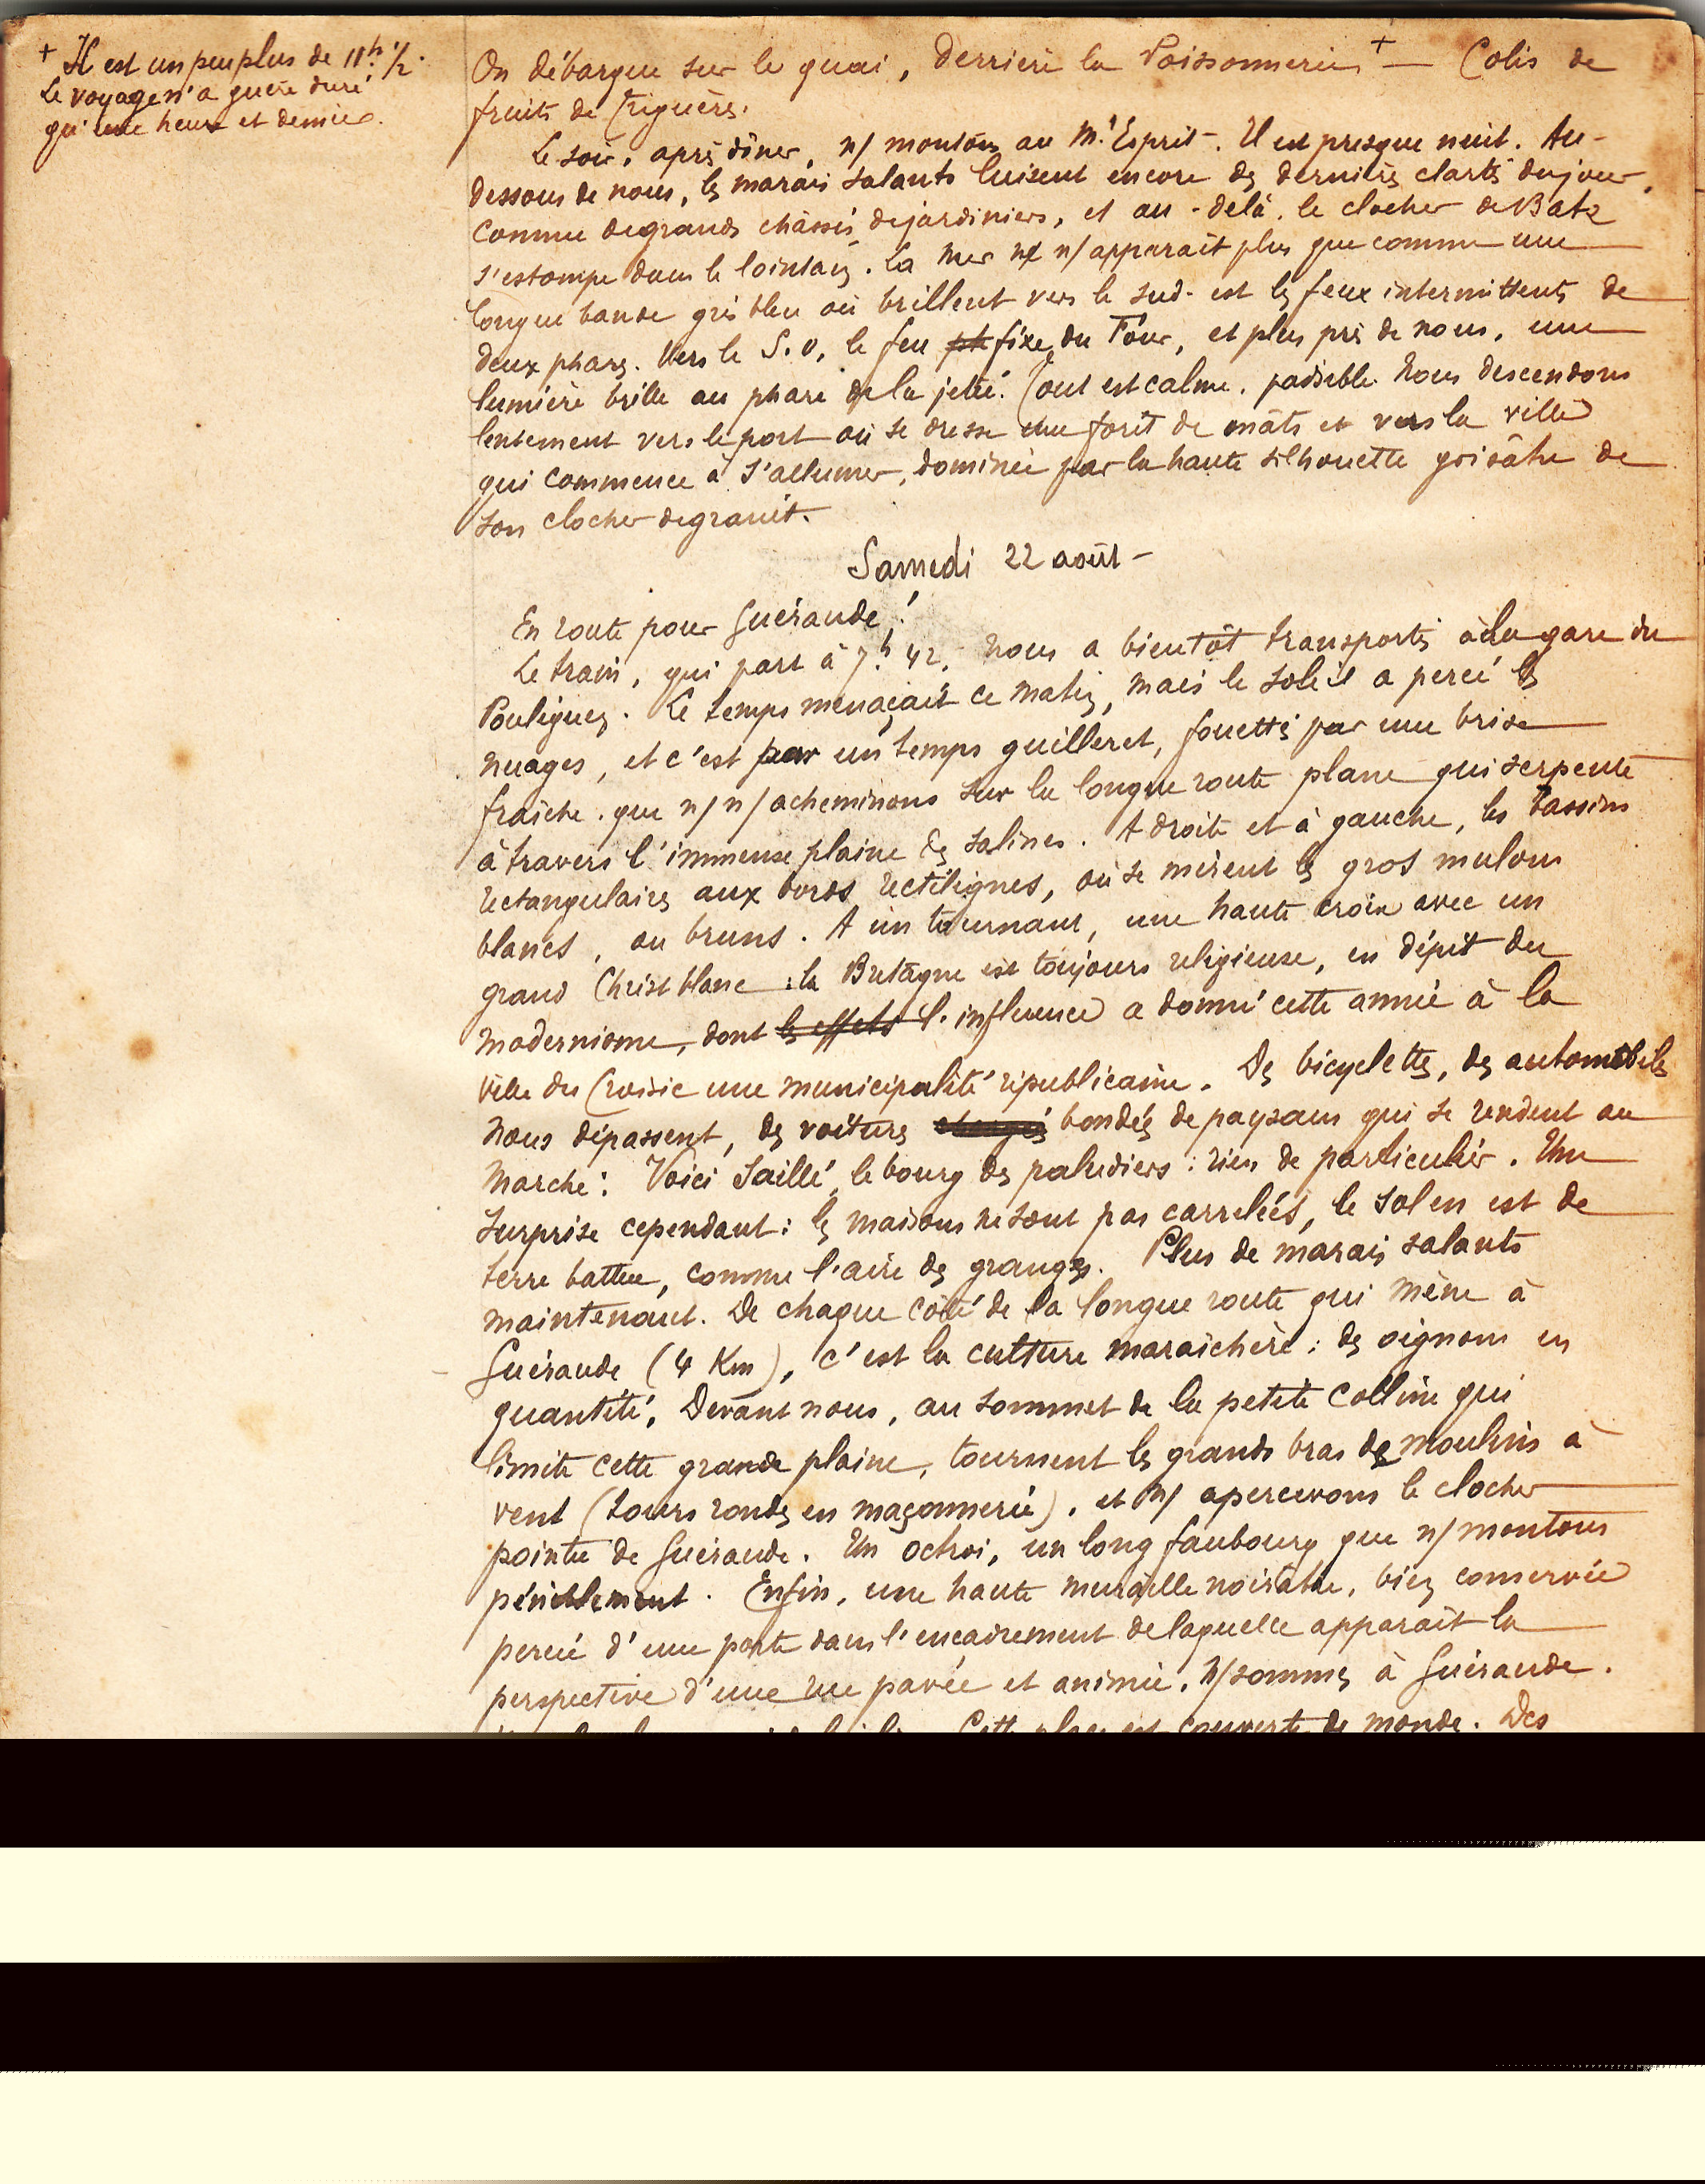 + Il est un peu plus de 11h 1/2.
Le voyage n'a guère duré
qu'une heure et demie.
On débarque sur le quai, derrière la Poissonnerie + — Colis de
fruits de Triguères.
Le soir, après dîner, n/ montons au Mt Esprit. Il est presque nuit. Au-
dessous de nous, les marais salants luisent encore des dernières clartés du jour,
comme de grands châssis de jardiniers, et au-delà, le clocher de Batz
s'estompe dans le lointain. La mer ne n/ apparaît plus que comme une
longue bande gris bleu où brillent vers le sud-est les feux intermittents de
deux phares. Vers le S.O, le feu ph fixe du Four, et plus près de nous, une
lumière brille au phare de la jetée. Tout est calme, paisible. Nous descendons
lentement vers le port où se dresse une forêt de mâts et vers la ville
qui commence à s'allumer, dominée par la haute silhouette grisâtre de
son clocher de granit.
Samedi 22 août –
En route pour Guérande !
Le train, qui part à 7h 42, nous a bientôt transportés à la gare du
Pouliguen. Le temps menaçait ce matin, mais le soleil a percé les
nuages, et c'est par un temps guilleret, fouettés par une brise
fraîche, que n/ n/ acheminons sur la longue route plane qui serpente
à travers l'immense plaine des salines. A droite et à gauche, les bassins
rectangulaires aux bords rectilignes, où se mirent les gros mulons
blancs, ou bruns. A un tournant, une haute croix avec un
grand Christ blanc : la Bretagne est toujours religieuse, en dépit du
modernisme, dont les effets l'influence a donné cette année à la
ville du Croisic une municipalité républicaine. Des bicyclettes, des automobiles
nous dépassent, des voitures chargées bondées de paysans qui se rendent au
marché. Voici Saillé, le bourg des paludiers : rien de particulier. Une
surprise cependant : les maisons ne sont pas carrelées, le sol en est de
terre battue, comme l'aire des granges. Plus de marais salants
maintenant. De chaque côté de la longue route qui mène à
Guérande (4 Km), c'est la culture maraîchère : des oignons en
quantité. Devant nous, au sommet de la petite colline qui
limite cette grande plaine, tournent les grands bras de moulins à
vent (tours rondes en maçonnerie), et n/ apercevons le clocher
pointu de Guérande. Un octroi, un long faubourg que n/ montons
péniblement. Enfin, une haute muraille noirâtre, bien conservée
percée d'une porte dans l'encadrement de laquelle apparaît la
perspective d'une rue pavée et animée. N/ sommes à Guérande.
Cette place est couverte de monde. Des